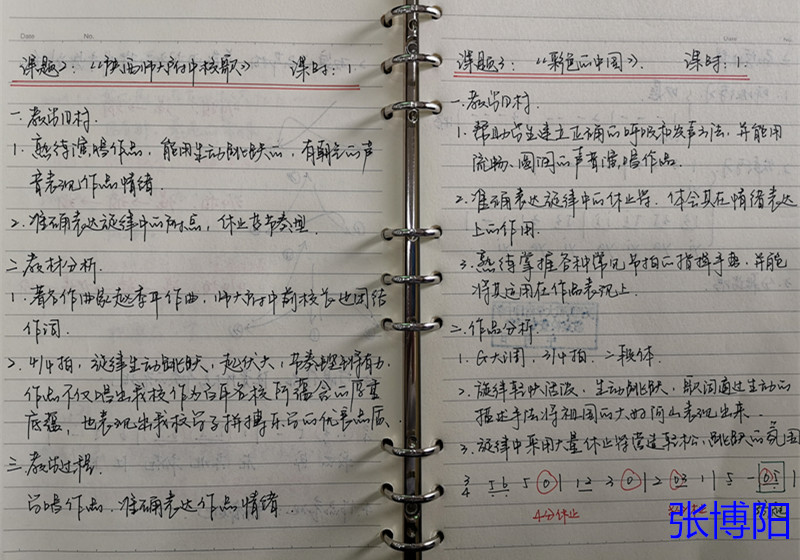 课题2：《陕西师大附中校歌》 课时：1.
一.教学目标.
1.熟练演唱作品，能用生动跳跃的，有朝气的声
音表现作品情绪.
2.准确表达旋律中的附点，休止节奏型.
二.教材分析.
1.著名作曲家赵季平作曲，师大附中前校长
作词.
2.4/4拍，旋律生动跳跃，起伏大，节奏坚毅有力.
作品不仅唱出我校作为百年名校所蕴含的厚重
底蕴，也表现出我校学子拼搏乐学的优良品质.
三.教学过程.
学唱作品，准确表达作品情绪.
课题3：《彩色的中国》. 课时：1.
一.教学目标.
1.帮助学生建立正确的呼吸和发声方法，并能用
流畅、圆润的声音演唱作品.
2.准确表达旋律中的休止符.体会其在情绪表达
上的作用.
3.熟练掌握各种常见节拍的指挥手势，并能
将其运用在作品表现上.
二.作品分析.
1.G大调，3/4拍.二段体.
2.旋律轻快活泼，生动跳跃，歌词通过生动的
描述手法将祖国的大好河山表现出来.
3.旋律中采用大量休止符营造轻松，跳跃的氛围
3/4 56 5 0 | 12 3 0 | 2 03 1 | 5 - 05 |
4分休止
张博阳